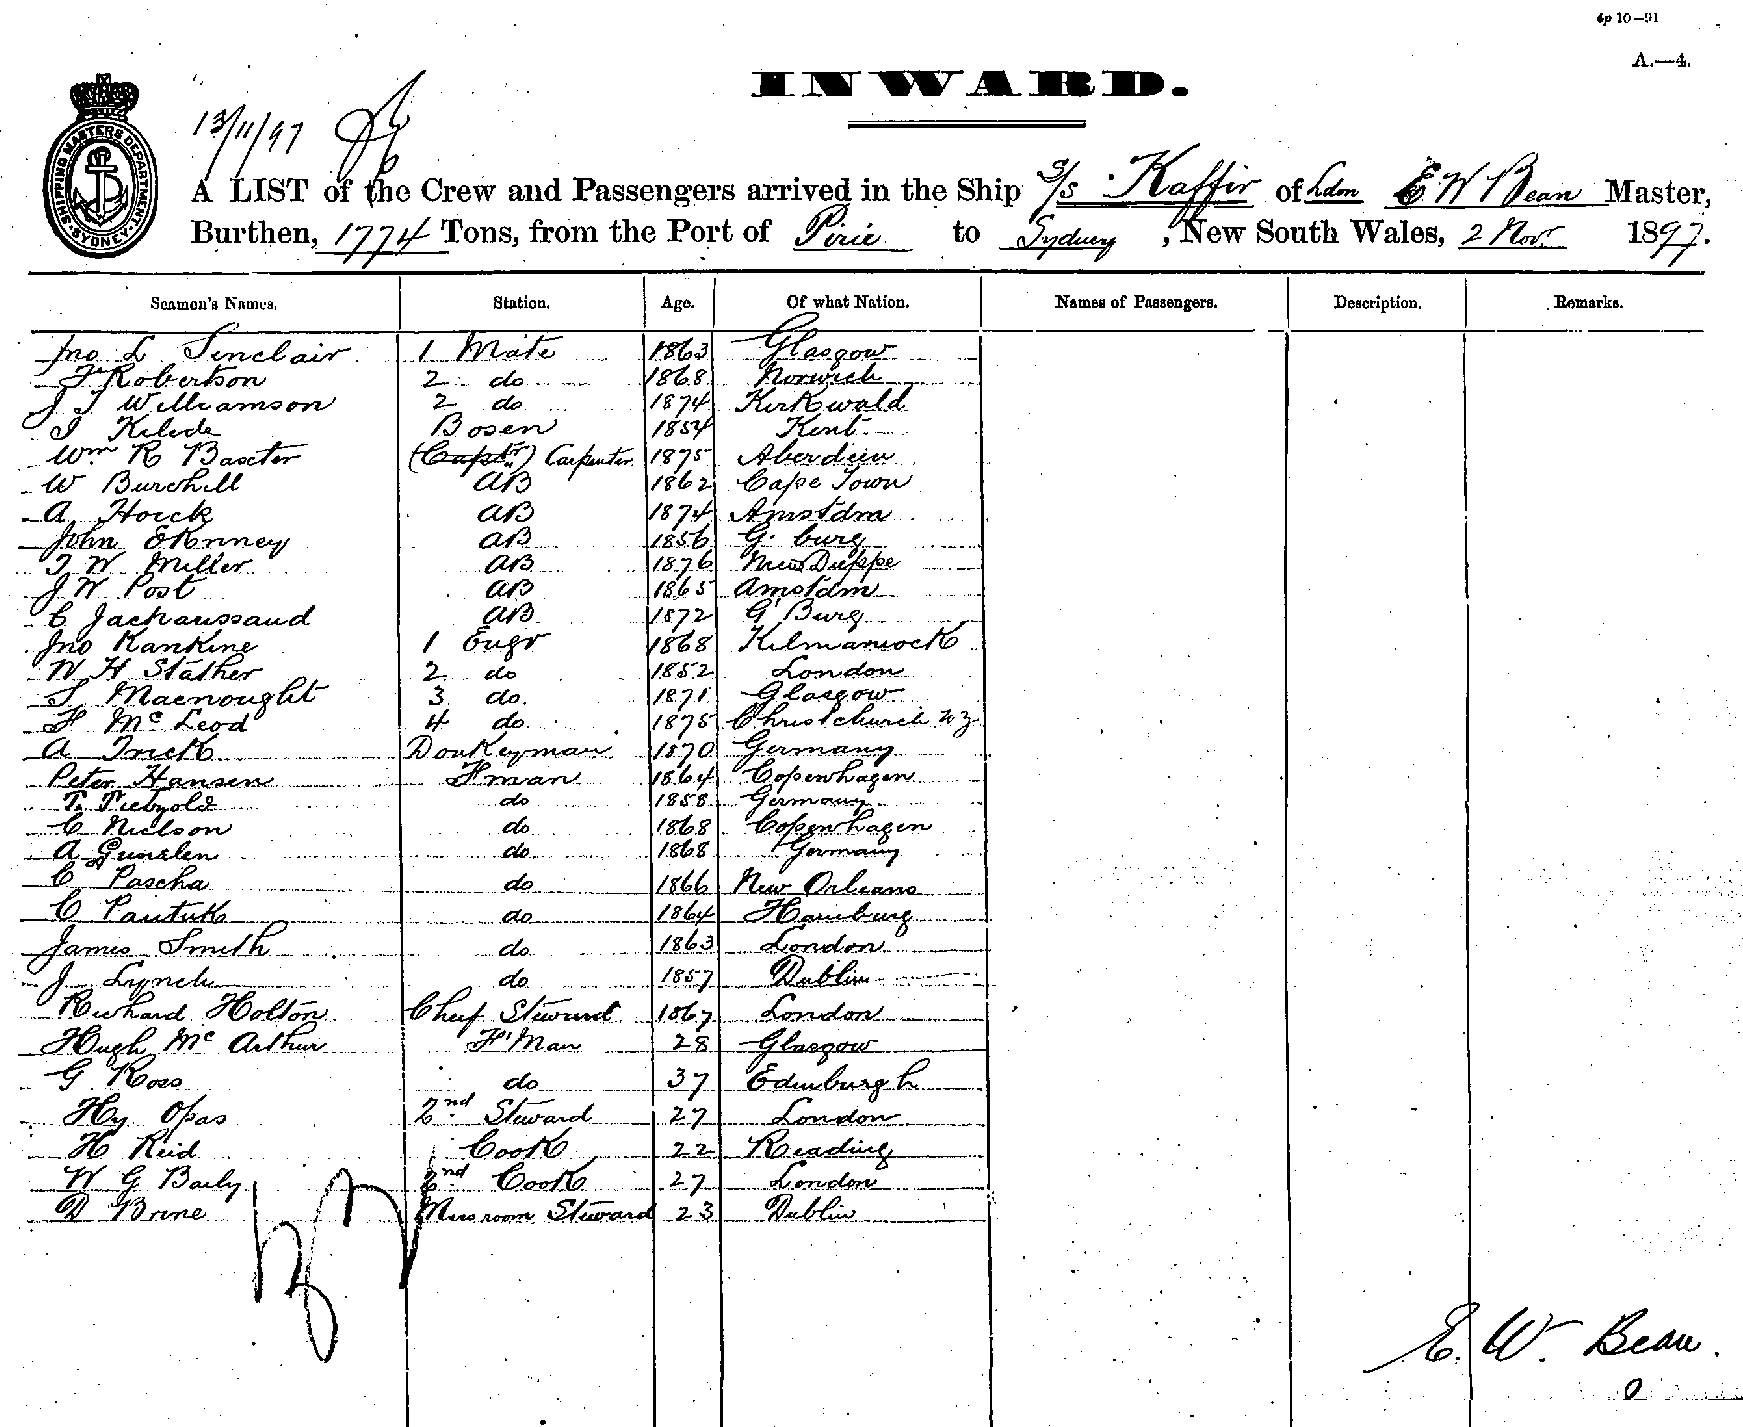 4p 10—91
A.—4.
INWARD.
SHIPPING MASTERS DEPARTMENT SYDNEY
13/11/97
A LIST of the Crew and Passengers arrived in the Ship S/S Kaffir of Ldon E W Bean Master,
Burthen, 1774 Tons, from the Port of Pirie to Sydney, New South Wales, 2 Novr 1897.
Seamen's Names. Station. Age. Of what Nation. Names of Passengers. Description. Remarks.
Jno L Sinclair 1 Mate 1863 Glasgow
Robertson 2 do 1868 Norwich
J T Williamson 2 do 1874 Kirkwald
Bosen 1854 Kent
Wm R Baxter (Captr) Carpenter 1875 Aberdeen
W Burchill AB 1862 Cape Town
A Horck AB 1874 Amstdm
John AB 1856 G. burg
T W Miller AB 1876 New Dieppe
J W Post AB 1865 Amstdm
C Jackaussaud AB 1872 G Burg
Jno Rankine 1 Engr 1868 Kilmarnock
W H Stather 2 do 1852 London
Macnought 3 do 1871 Glasgow
F Mc Leod 4 do 1875 Christchurch NZ
A Trick Donkeyman 1870 Germany
Peter Hansen Fman 1864 Copenhagen
T. do 1858 Germany
C Nielson do 1868 Copenhagen
A do 1868 Germany
C Pascha do 1866 New Orleans
C do 1864 Hamburg
James Smith do 1863 London
J Lynch do 1857 Dublin
Richard Holton Cheif Steward 1867 London
Hugh Mc Arthur F'Man 28 Glasgow
G Ross do 37 Edinburgh
Hy Opas 2nd Steward 27 London
H Reid Cook 22 Reading
W G Baily 2nd Cook 27 London
D Brine Messroom Steward 23 Dublin
E. W. Bean.